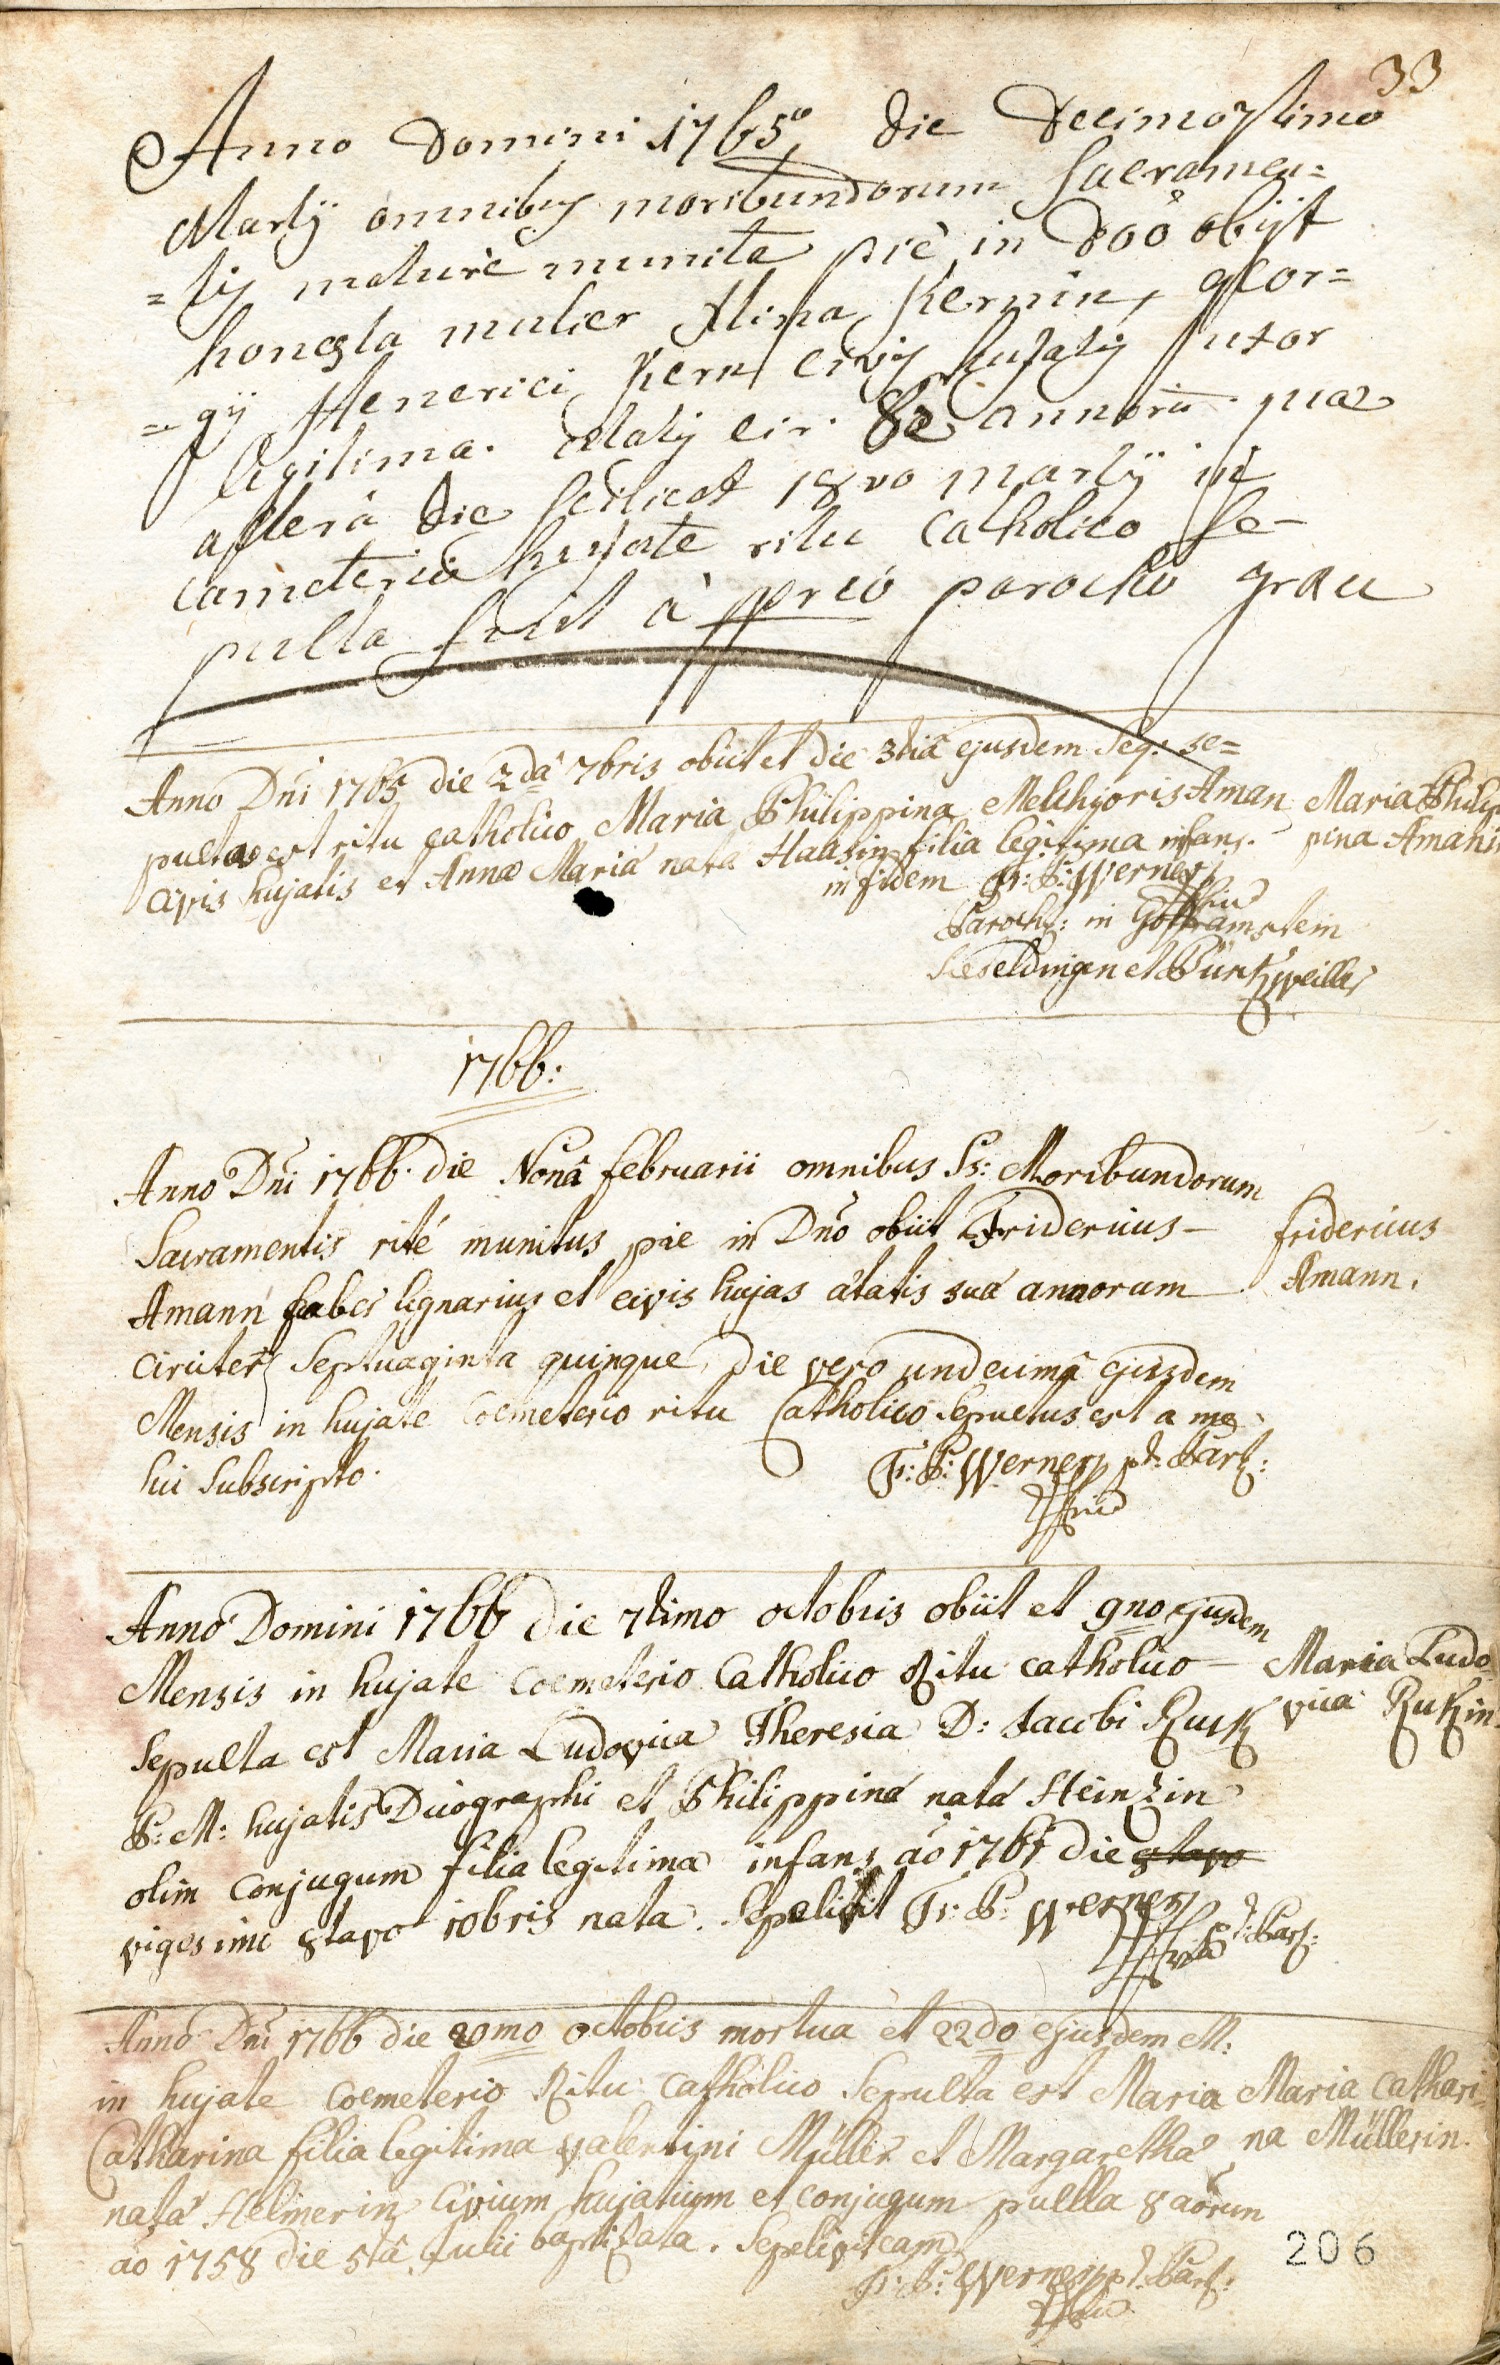 33
Anno Domini 1765to die Decimo7timo
Martÿ omnibus moribundorum Sacramen=
=tis maturè munita piè in Dno obÿt
honesta mulier Anna Kernin, geor=
=gÿ Henerici Kern civis hujatis uxor
legitima. ætatis cir. annorū quæ
alterâ die scilicet 18vo martÿ in
cæmeterio hujate ritu Catholico se-
pulta fuit à parocho grau
Anno Dni 1765 die 2dâ 7bris obiit et die 3tiâ ejusdem Seq: se=
pulta est ritu catholico Maria Philippina Melchioris Aman
civis hujatis et Annæ Maria nata Haasin filia legitima infans.
Maria Philip
pina Amanin
in fidem Fr: P: Werner
Paroch: in Godramstein
Sieseldingen et Bürckweiller
1766:
Anno Dni 1766. die Nonâ februarii omnibus Ss: Moribundorum
Sacramentis rité munitus pie in Dno obiit Fridericus -
Amann faber lignarius et civis hujas ætatis suæ annorum
circiter Septuaginta quinque, die vero undecimâ ejusdem
Mensis in hujate Coemeterio ritu Catholico sepultus est a me
hic Subscripto.
Fridericus
Amann.
Fr: P: Werner pt: Par:
Anno Domini 1766 die 7timo octobris obiit et 9no ejusdem
Mensis in hujate Coemeterio Catholico Ritu catholico -
Sepulta est Maria Ludovica Theresia D: Jacobi Ruck
P: M: hujatis Duographi et Philippinæ nata Heinzin
olim conjugum filia legitima infans aō 1765 die 8tavo
vigesimo 8tavo 10bris nata. Sepelivit Fr: P: Werner
pt: Par:
Maria Ludo
vica Rukin.
Anno Dni 1766 die 20mo octobris mortua et 22do ejusdem M:
in hujate Coemeterio Ritu Catholico Sepulta est Maria
Catharina filia legitima Valentini Müller et Margaretha
nata Helmerin Civium hujatium et conjugum puella 8 aōrum
aō 1758 die 5tâ Julii baptizata. Sepelivit eam
Maria Cathari
na Müllerin.
Fr: P: Werner pt: Par:
206